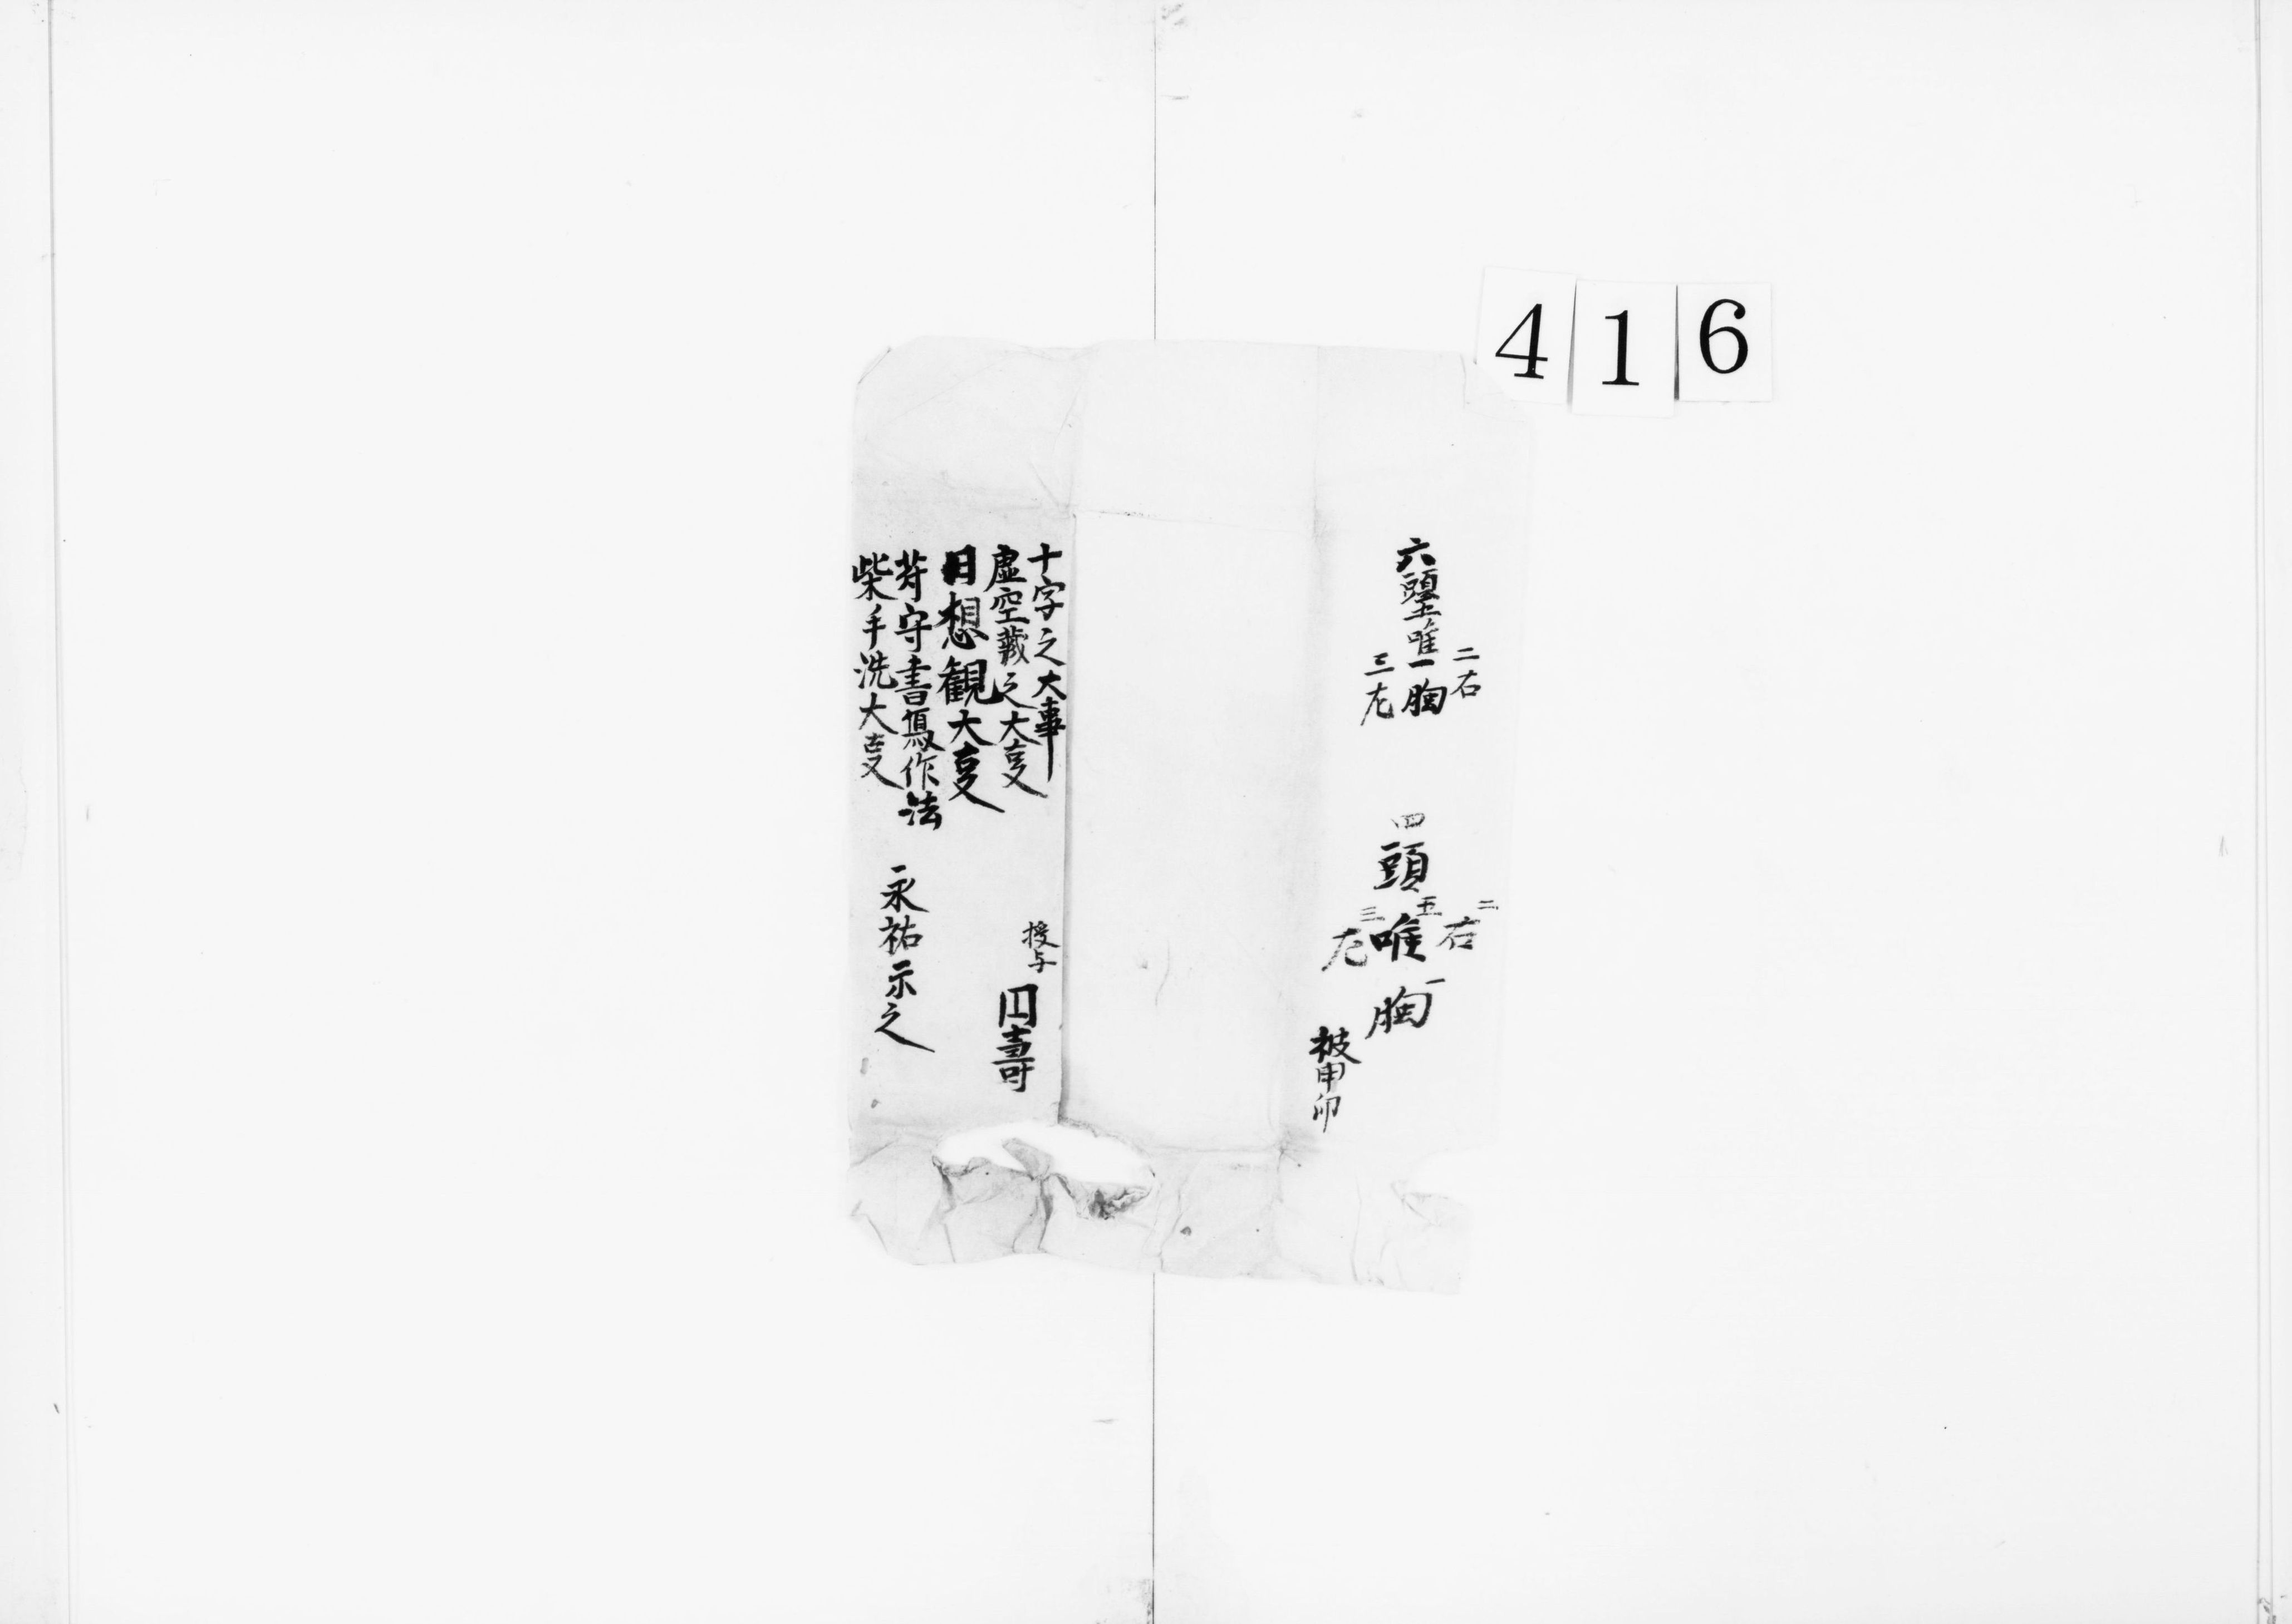 416
六頭五唯一胸
二右
三左
四頭
五唯
二右
三左
一胸
被甲印
十字之大事
虚空蔵之大事
日想観大事
符守書写作法
柴手洗大事
授与
円寿
永祐示之